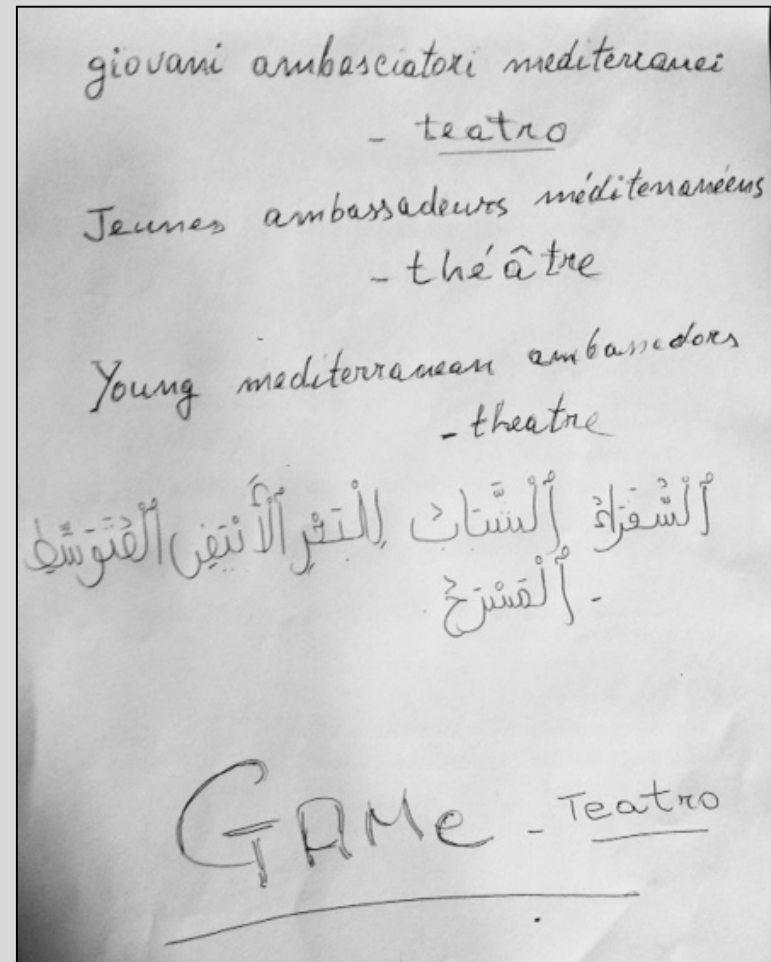 giovani ambasciatori mediterranei
- teatro
Jeunes ambassadeurs méditerranéens
- théâtre
Young mediterranean ambassadors
- theatre
ٱلْسُّفَرَاءُ ٱلْشَّبَابُ لِلْبَحْرِ ٱلْأَبْيَضِ ٱلْمُتَوَسِّطِ
- ٱلْمَسْرَحُ
GAMe - Teatro